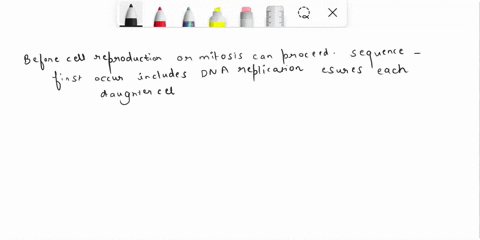 Before cell reproduction or mitosis can proceed. sequence -
first occur includes DNA replication esures each
daughter cell